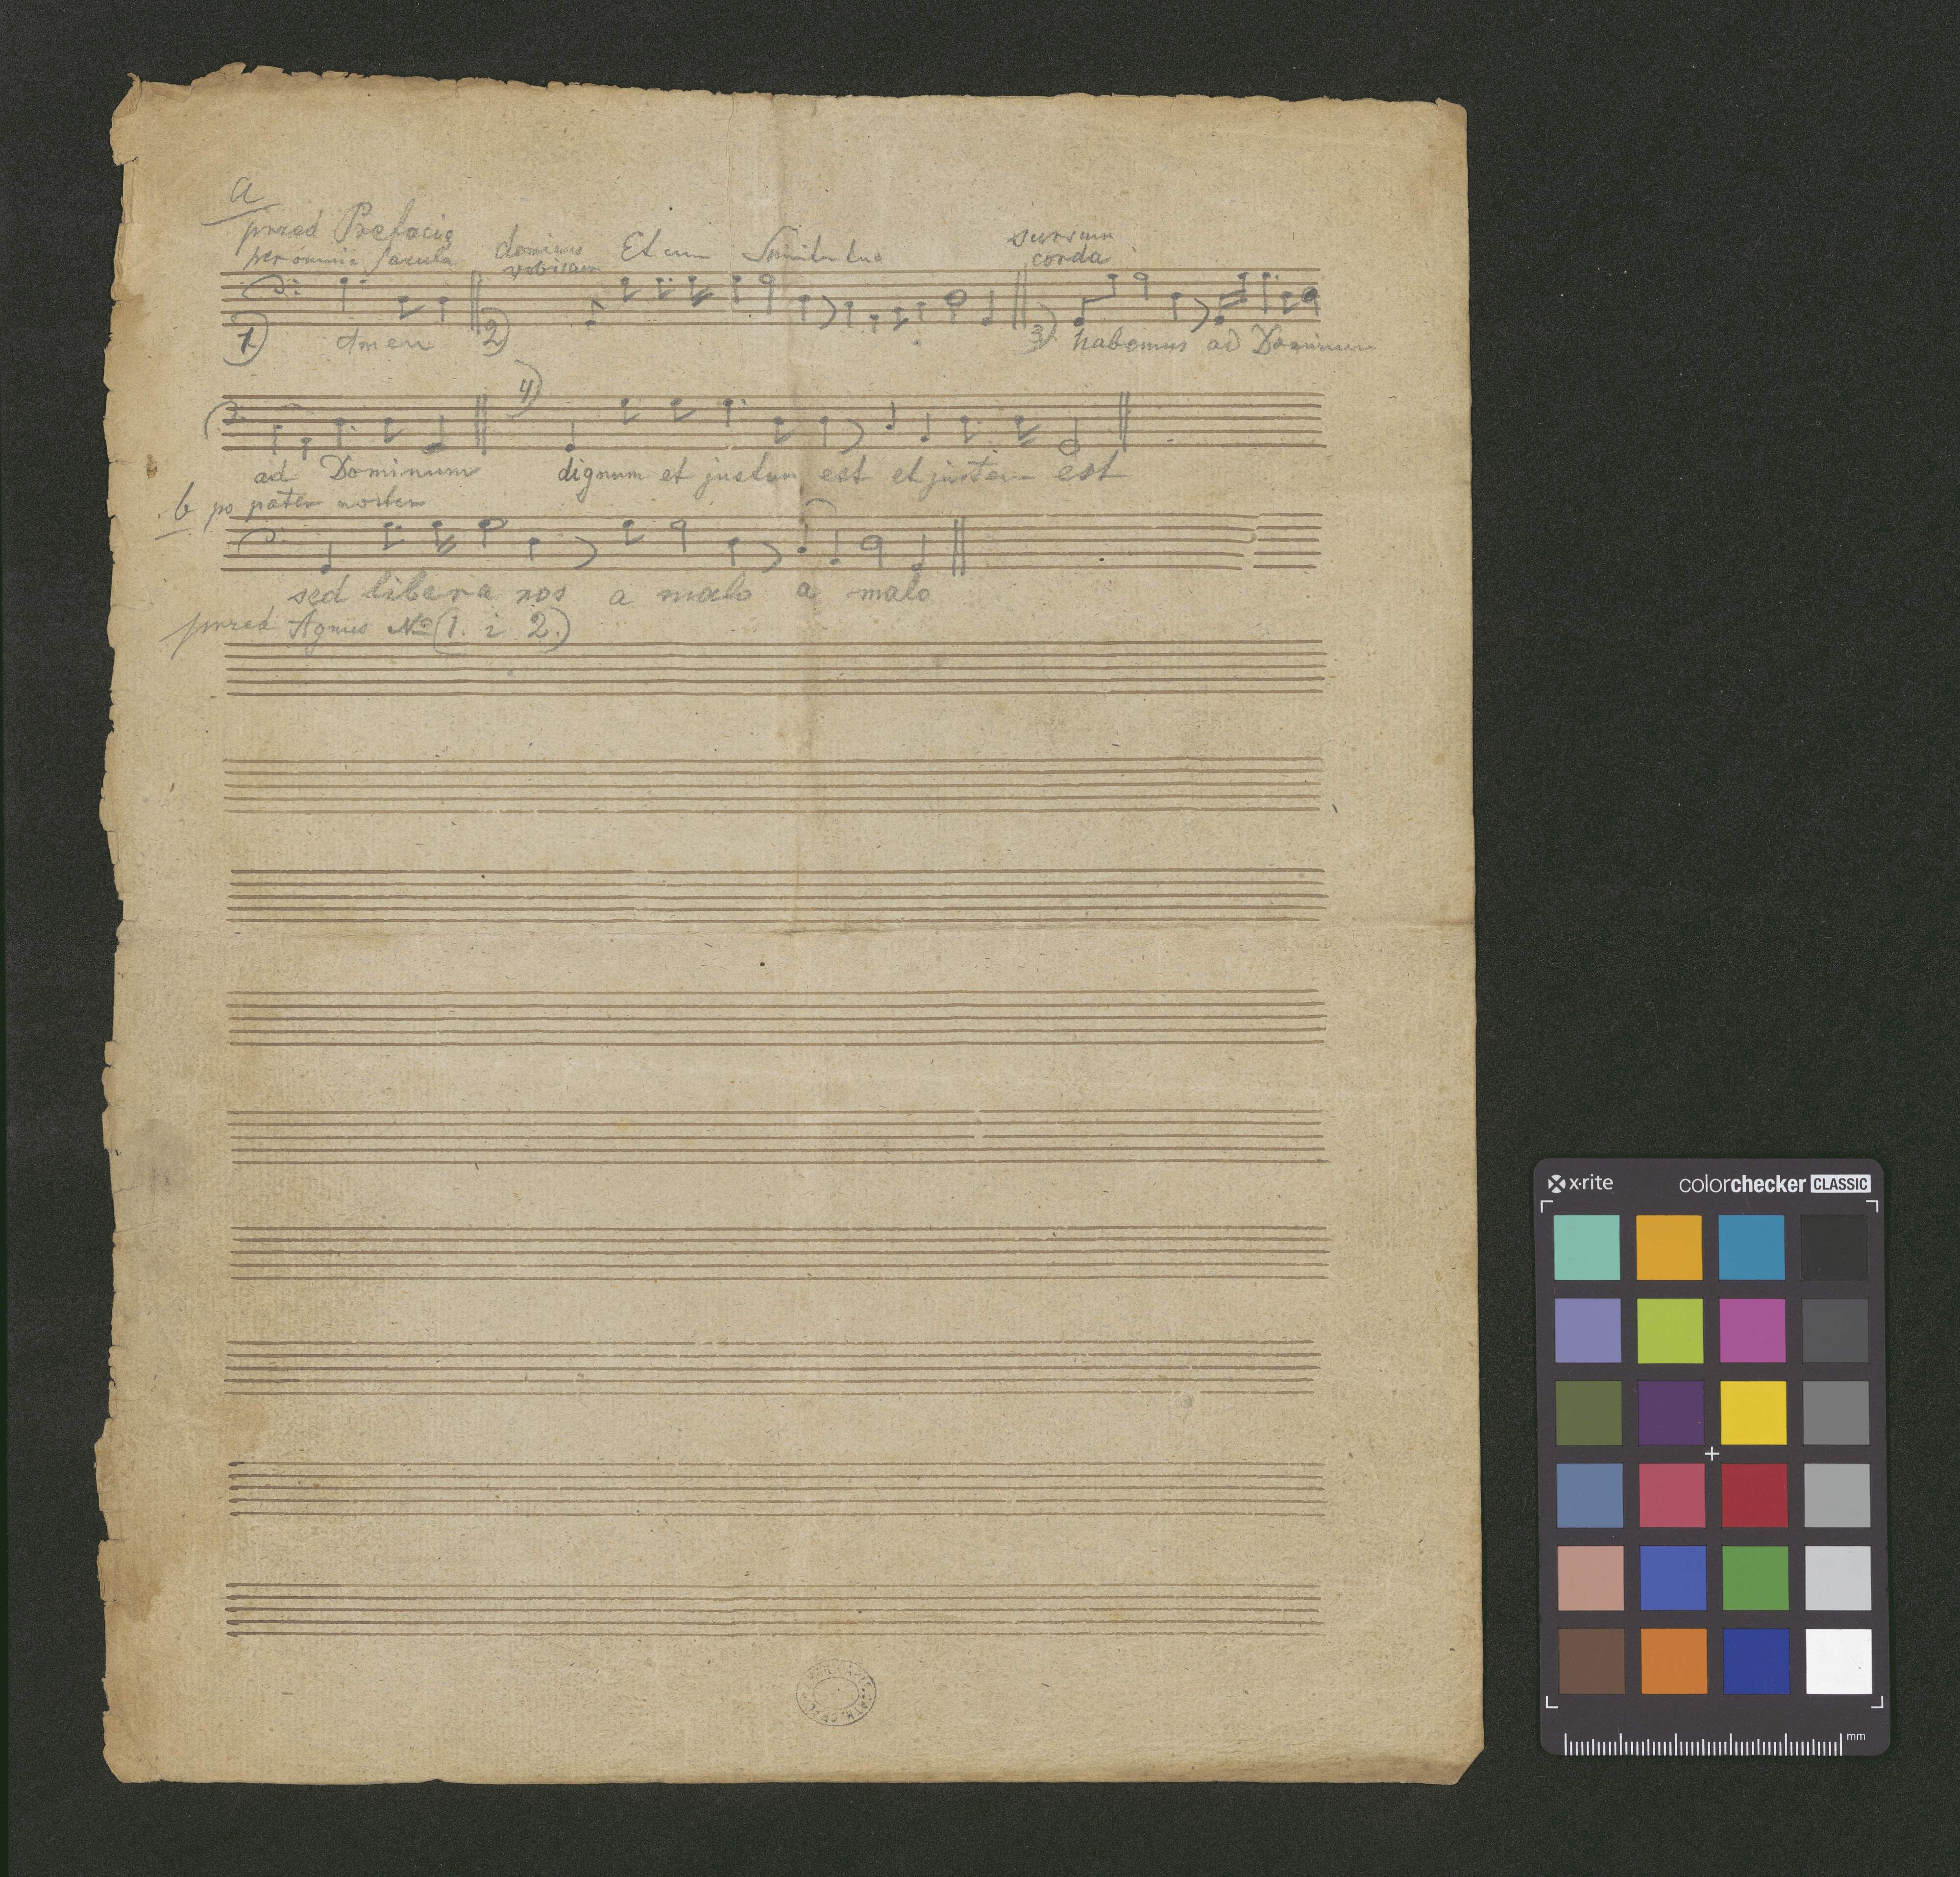 a
przed Prefacią
per omnia saecula dominus vobiscum Et cum Spiritu tuo sursum corda
1) Amen 2) 3) habemus ad Dominum
4)
ad Dominum dignum et justum est et justum est
b po pater noster
sed libera nos a malo a malo
przed Agnus No (1. i 2.)
x·rite colorchecker CLASSIC
mm